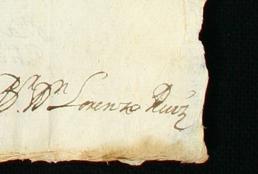 Br. Dn. Lorenzo Ruiz